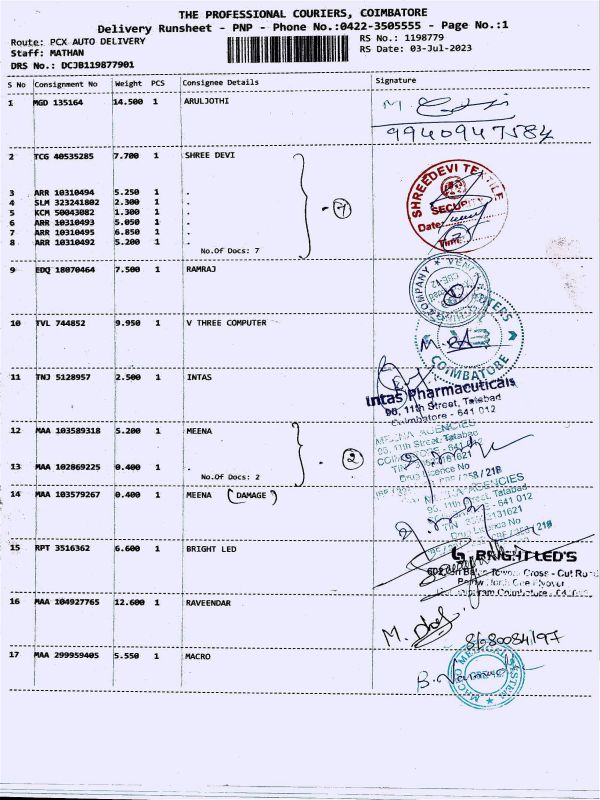 THE PROFESSIONAL COURIERS, COIMBATORE
Delivery Runsheet - PNP - Phone No.:0422-3505555 - Page No.:1
Route: PCX AUTO DELIVERY
RS No.: 1198779
Staff: MATHAN
RS Date: 03-Jul-2023
DRS No.: DCJB119877901
S No Consignment No Weight PCS Consignee Details Signature
1 MGD 135164 14.500 1 ARULJOTHI
M.
9940947584
2 TCG 40535285 7.700 1 SHREE DEVI
3 ARR 10310494 5.250 1 .
4 SLM 323241802 2.300 1 .
5 KCM 50043082 1.300 1 .
6 ARR 10310493 5.050 1 .
7 ARR 10310495 6.850 1 .
8 ARR 10310492 5.200 1 .
No.Of Docs: 7
- 7
SHREEDEVI TEXTILE
SECURITY
Date:
Time:
9 EDQ 18070464 7.500 1 RAMRAJ
COMPANY
10 TVL 744852 9.950 1 V THREE COMPUTER
COIMBATORE
11 TNJ 5128957 2.500 1 INTAS
Intas Pharmaceuticals
96, 11th Street, Tatabad
Coimbatore - 641 012
12 MAA 103589318 5.200 1 MEENA
13 MAA 102869225 0.400 1 .
No.Of Docs: 2
- 2
MEENA AGENCIES
95, 11th Street, Tatabad
Drug Licence No
14 MAA 103579267 0.400 1 MEENA (DAMAGE)
AGENCIES
Street, Tatabad
641 012
Drug Licence No
15 RPT 3516362 6.600 1 BRIGHT LED
BRIGHT LED'S
Cross - Cut Road
16 MAA 104927765 12.600 1 RAVEENDAR
M.
17 MAA 299959405 5.550 1 MACRO
B.
MACRO MEDICAL SYSTEM